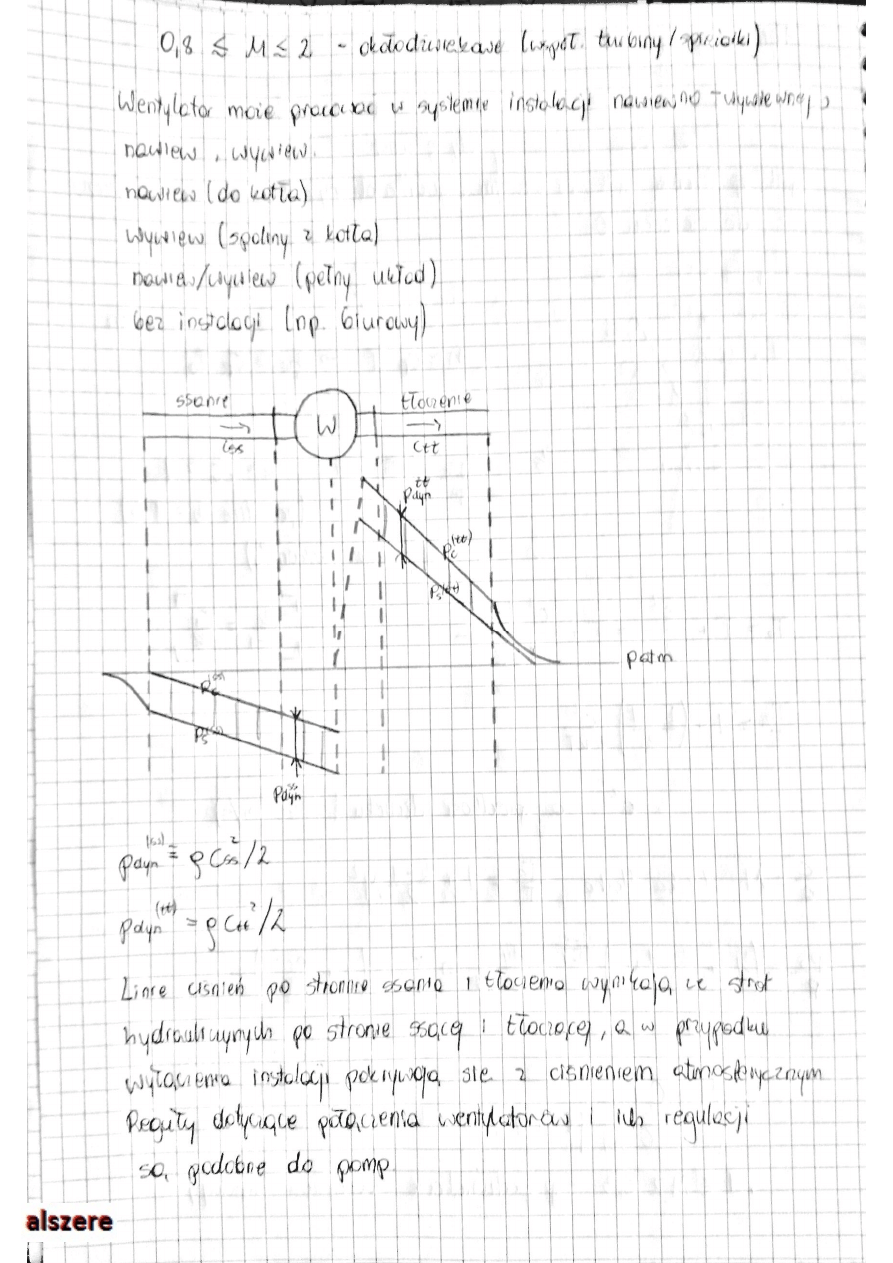 0,8 ≤ M ≤ 2 - okołodźwiękowe (współ. turbiny/sprężarki)
Wentylator może pracować w systemie instalacji nawiewno-wywiewnej,
nawiew, wywiew.
nawiew (do kotła)
wywiew (spaliny z kotła)
nawiew/wywiew (pełny układ)
bez instalacji (np. biurowy)
ssanie W tłoczenie
Css Ctt
Pdyn tt
Pc (tt)
Ps (tt)
Patm
Pc (ss)
Ps (ss)
Pdyn ss
Pdyn (ss) = ρ Css²/2
Pdyn (tt) = ρ Ctt²/2
Linie ciśnień po stronie ssania i tłoczenia wynikają ze strat
hydraulicznych po stronie ssącej i tłoczącej, a w przypadku
wyłączenia instalacji pokrywają się z ciśnieniem atmosferycznym
Reguły dotyczące połączenia wentylatorów i ich regulacji
są podobne do pomp.
alszere